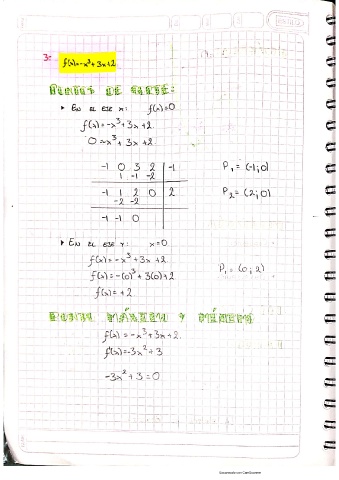 3-
f(x)=-x³+3x+2
PUNTOS DE CORTE:
▸ EN EL EJE X: f(x)=0
f(x)=-x³+3x+2.
0=-x³+3x+2
-1 0 3 2 | -1
1 -1 -2
-1 1 2 0 | 2
-2 -2
-1 -1 0
P₁ = (-1;0)
P₂ = (2;0)
▸ EN EL EJE Y: x=0
f(x)=-x³+3x+2.
f(x)=-(0)³+3(0)+2
f(x)=+2
P₁ = (0;2)
PUNTOS MÁXIMO Y MÍNIMO
f(x)=-x³+3x+2.
f'(x)=-3x²+3
-3x²+3=0